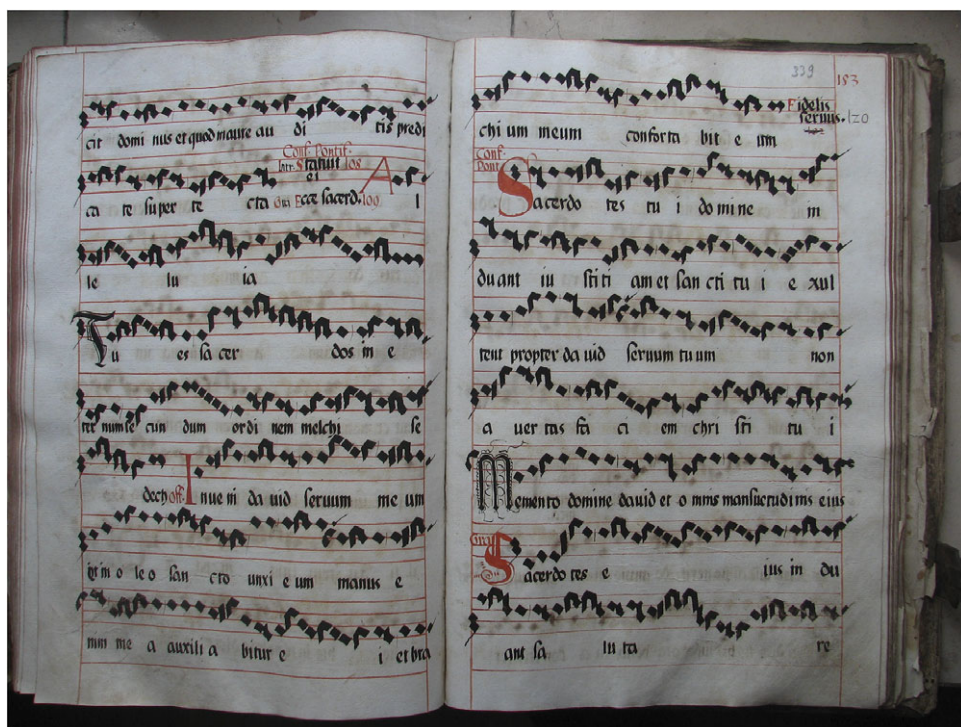 cit domi nus et quod in aure au di tis predi
Conf. Pontif.
Intr. Statuit 108
ei
ca te super te cta Gra Ecce sacerd. 100 A l
le lu ia
Tu es sa cer dos in e
ter num se cun dum ordi nem melchi se
dech off. Inueni da uid seruum me um
in o le o san cto unxi e um manus e
nim me a auxili a bitur e i et bra
339
153
chi um meum conforta bit e um Fidelis
seruus. 120
Conf.
Pont.
Sacerdo tes tu i do mine in
du ant iu sti ti am et san cti tu i e xul
tent propter da uid seruum tu um non
a uer tas fa ci em chri sti tu i
Memento domine dauid et o mnis mansuetudinis eius
Gra
Sacerdo tes e ius in du
ant sa lu ta re